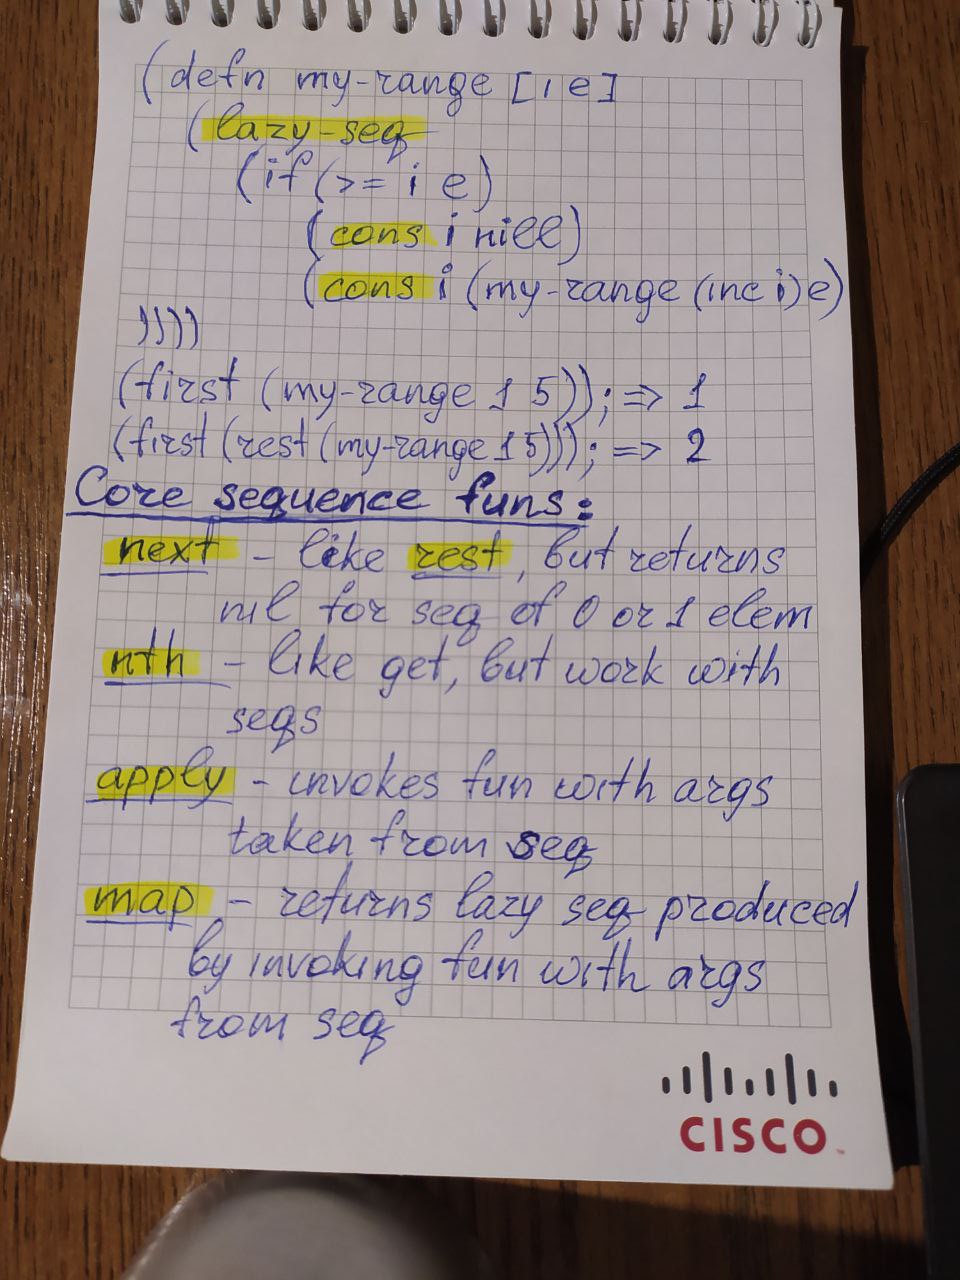 (defn my-range [i e]
(lazy-seq
(if (>= i e)
(cons i nill)
(cons i (my-range (inc i) e)
))))
(first (my-range 1 5)); => 1
(first (rest (my-range 1 5))); => 2
Core sequence funs:
next - like rest, but returns
nil for seq of 0 or 1 elem
nth - like get, but work with
seqs
apply - invokes fun with args
taken from seq
map - returns lazy seq produced
by invoking fun with args
from seq
CISCO